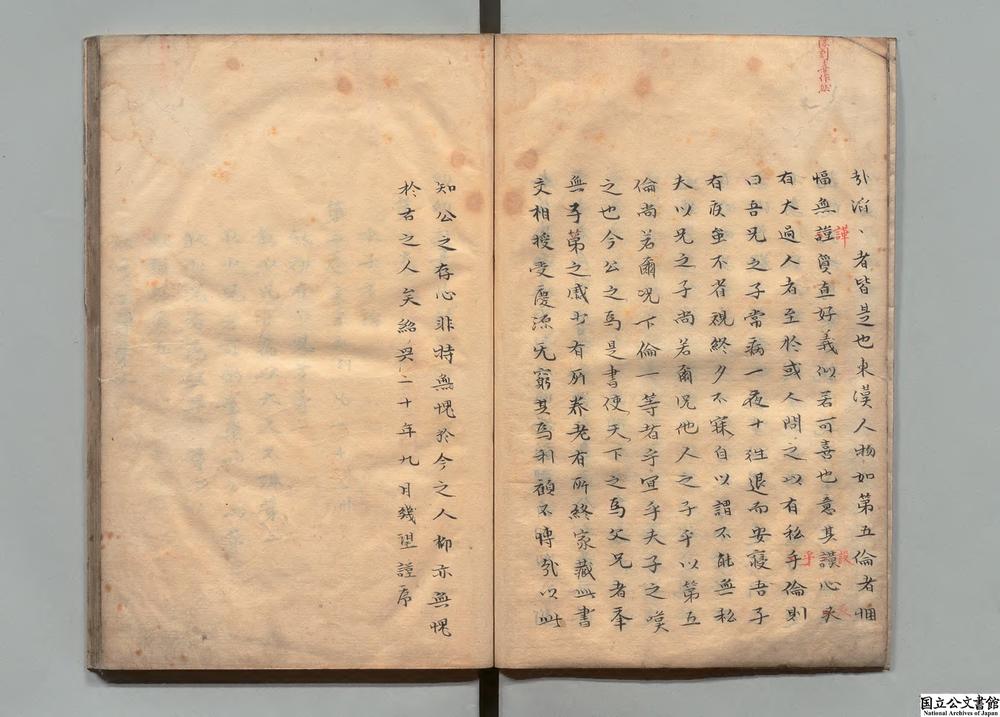 哉滔、者皆是也東漢人物如第五倫者悃
愊無謹質直好義似若可喜也意其謨心必
有大過人者至於或人問之以有私乎倫則
曰吾兄之子常病一夜十往退而安寢吾子
有疾雖不省視終夕不寐自以謂不能無私
夫以兄之子尚若爾况他人之子乎以第五
倫尚若爾况下倫一等者乎宜乎夫子之嘆
之也今公之為是書使天下之為父兄者舉
無子第之戚少有所養老有所終家藏此書
交相授受慶流无窮其為利顧不博哉以此
知公之存心非特無愧於今之人抑亦無愧
於古之人矣紹興二十年九月幾望謹序
譁
乎
国立公文書館
National Archives of Japan